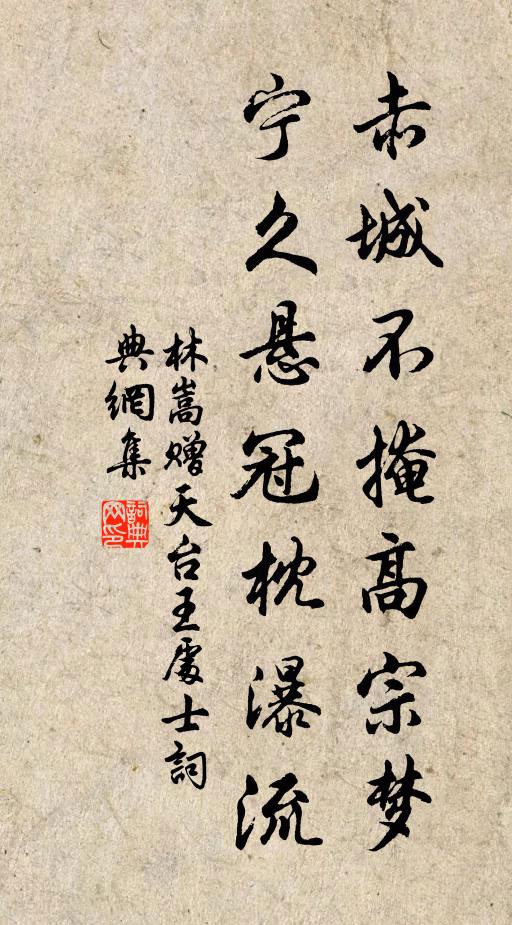 赤城不掩高宗梦
宁久悬冠枕瀑流
林嵩赠天台王處士詞
典網集
詞典网印